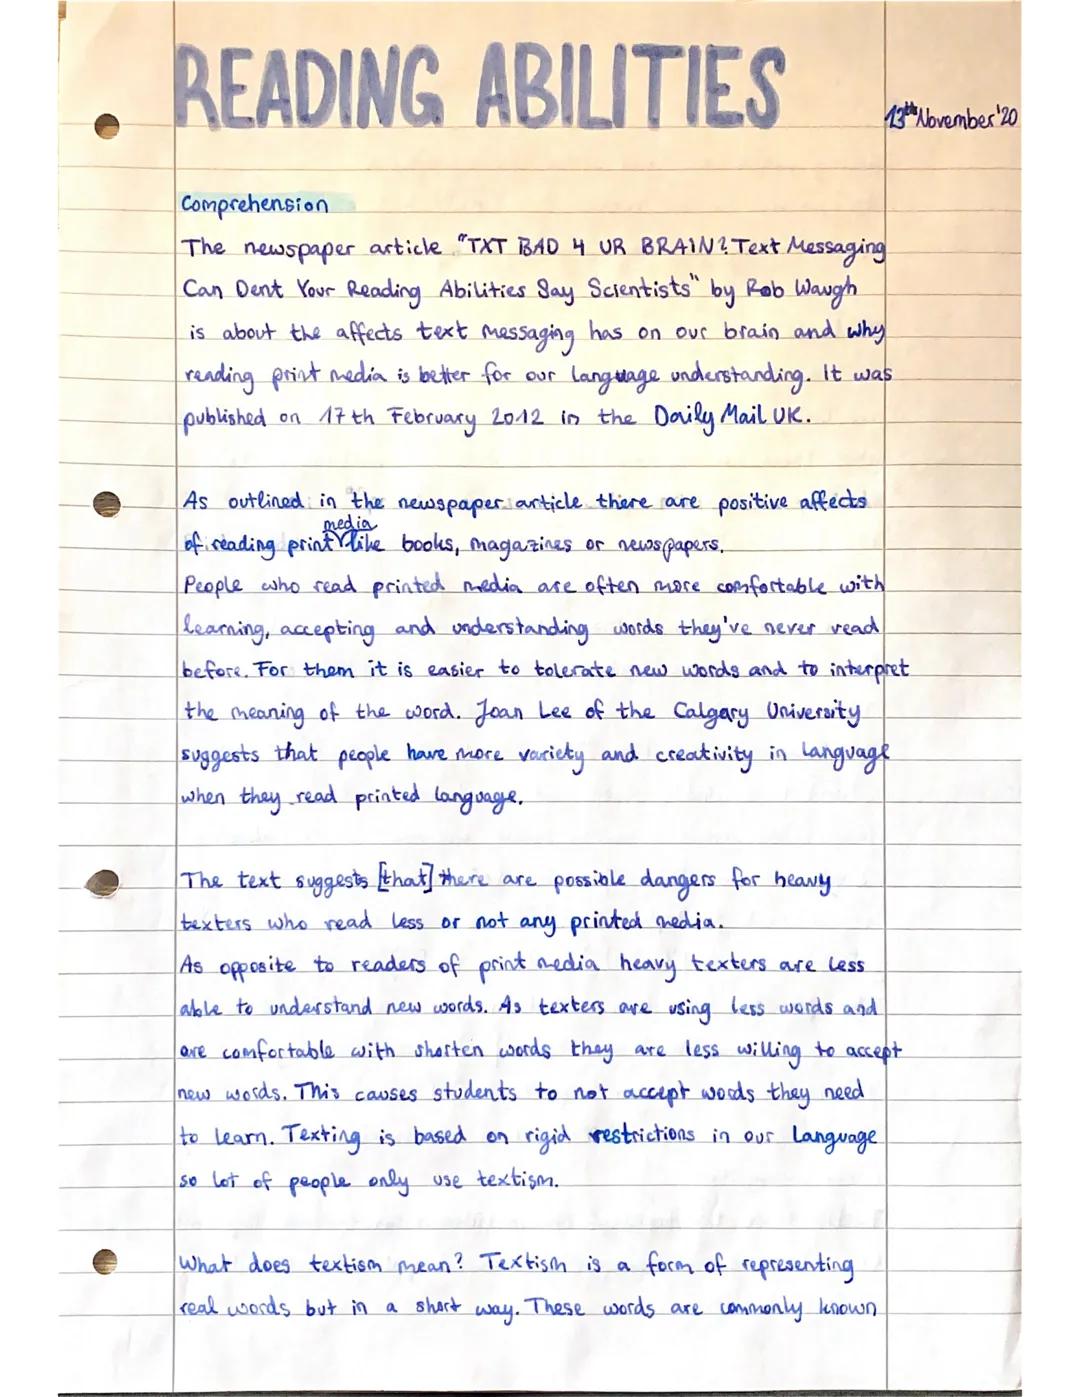 READING ABILITIES
13th November '20
Comprehension
The newspaper article "TXT BAD 4 UR BRAIN? Text Messaging
Can Dent Your Reading Abilities Say Scientists" by Rob Waugh
is about the affects text messaging has on our brain and why
reading print media is better for our language understanding. It was
published on 17th February 2012 in the Daily Mail UK.
As outlined in the newspaper article there are positive affects
of reading print media like books, magazines or newspapers.
People who read printed media are often more comfortable with
learning, accepting and understanding words they've never read
before. For them it is easier to tolerate new words and to interpret
the meaning of the word. Joan Lee of the Calgary University
suggests that people have more variety and creativity in language
when they read printed language.
The text suggests [that] there are possible dangers for heavy
texters who read less or not any printed media.
As opposite to readers of print media heavy texters are less
able to understand new words. As texters are using less words and
are comfortable with shorten words they are less willing to accept
new words. This causes students to not accept words they need
to learn. Texting is based on rigid restrictions in our language
so lot of people only use textism.
What does textism mean? Textism is a form of representing
real words but in a short way. These words are commonly known